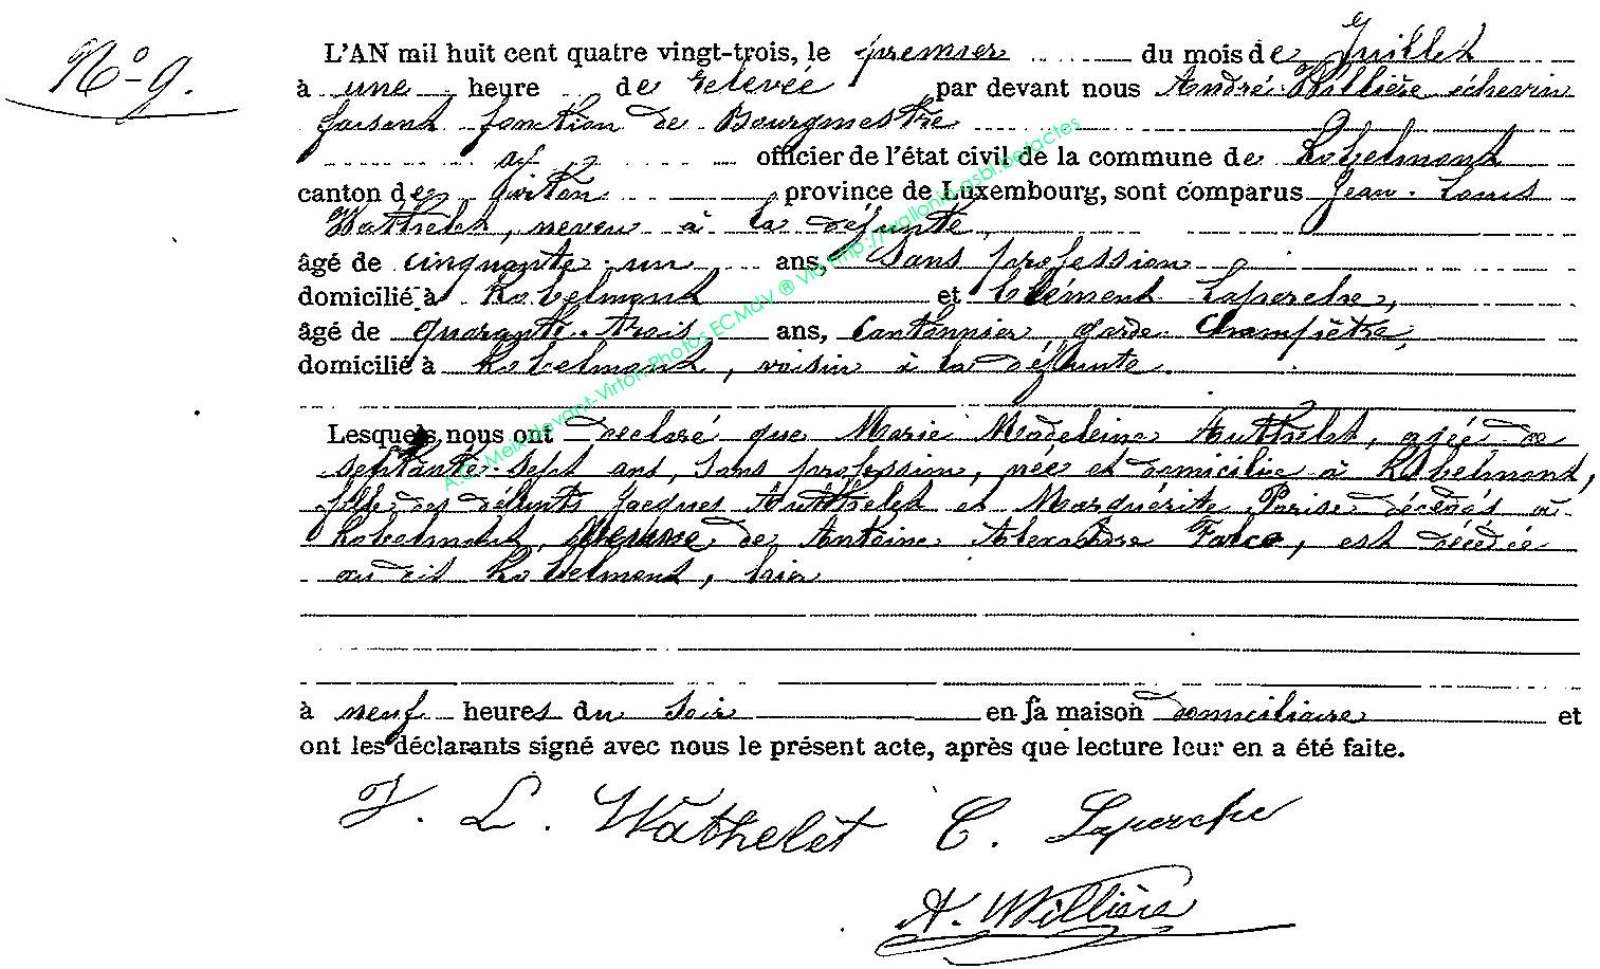 N° 9.
L'AN mil huit cent quatre vingt-trois, le premier du mois de Juillet
à une heure de relevée par devant nous André Willière échevin
faisant fonction de Bourgmestre
officier de l'état civil de la commune de Robelmont
canton de Virton province de Luxembourg, sont comparus Jean-Louis
Wathelet, neveu à la défunte,
âgé de cinquante-un ans, Sans profession
domicilié à Robelmont et Clément Laperche,
âgé de quarante-trois ans, Cantonnier, garde Champêtre,
domicilié à Robelmont, voisin à la défunte.
Lesquels nous ont déclaré que Marie Madeleine Authelet, agée de
septante-sept ans, Sans profession, née et domiciliée à Robelmont,
fille des défunts Jacques Authelet et Marguérite Parise décédés à
Robelmont, de Antoine Alexandre, est décédée
au dit Robelmont, hier
à neuf heures du soir en sa maison domiciliaire et
ont les déclarants signé avec nous le présent acte, après que lecture leur en a été faite.
J. L. Wathelet C. Laperche
A. Willière
A.C. Meix-devant-Virton Photos ECMdV ® Via http://wallonia-asbl.be/actes